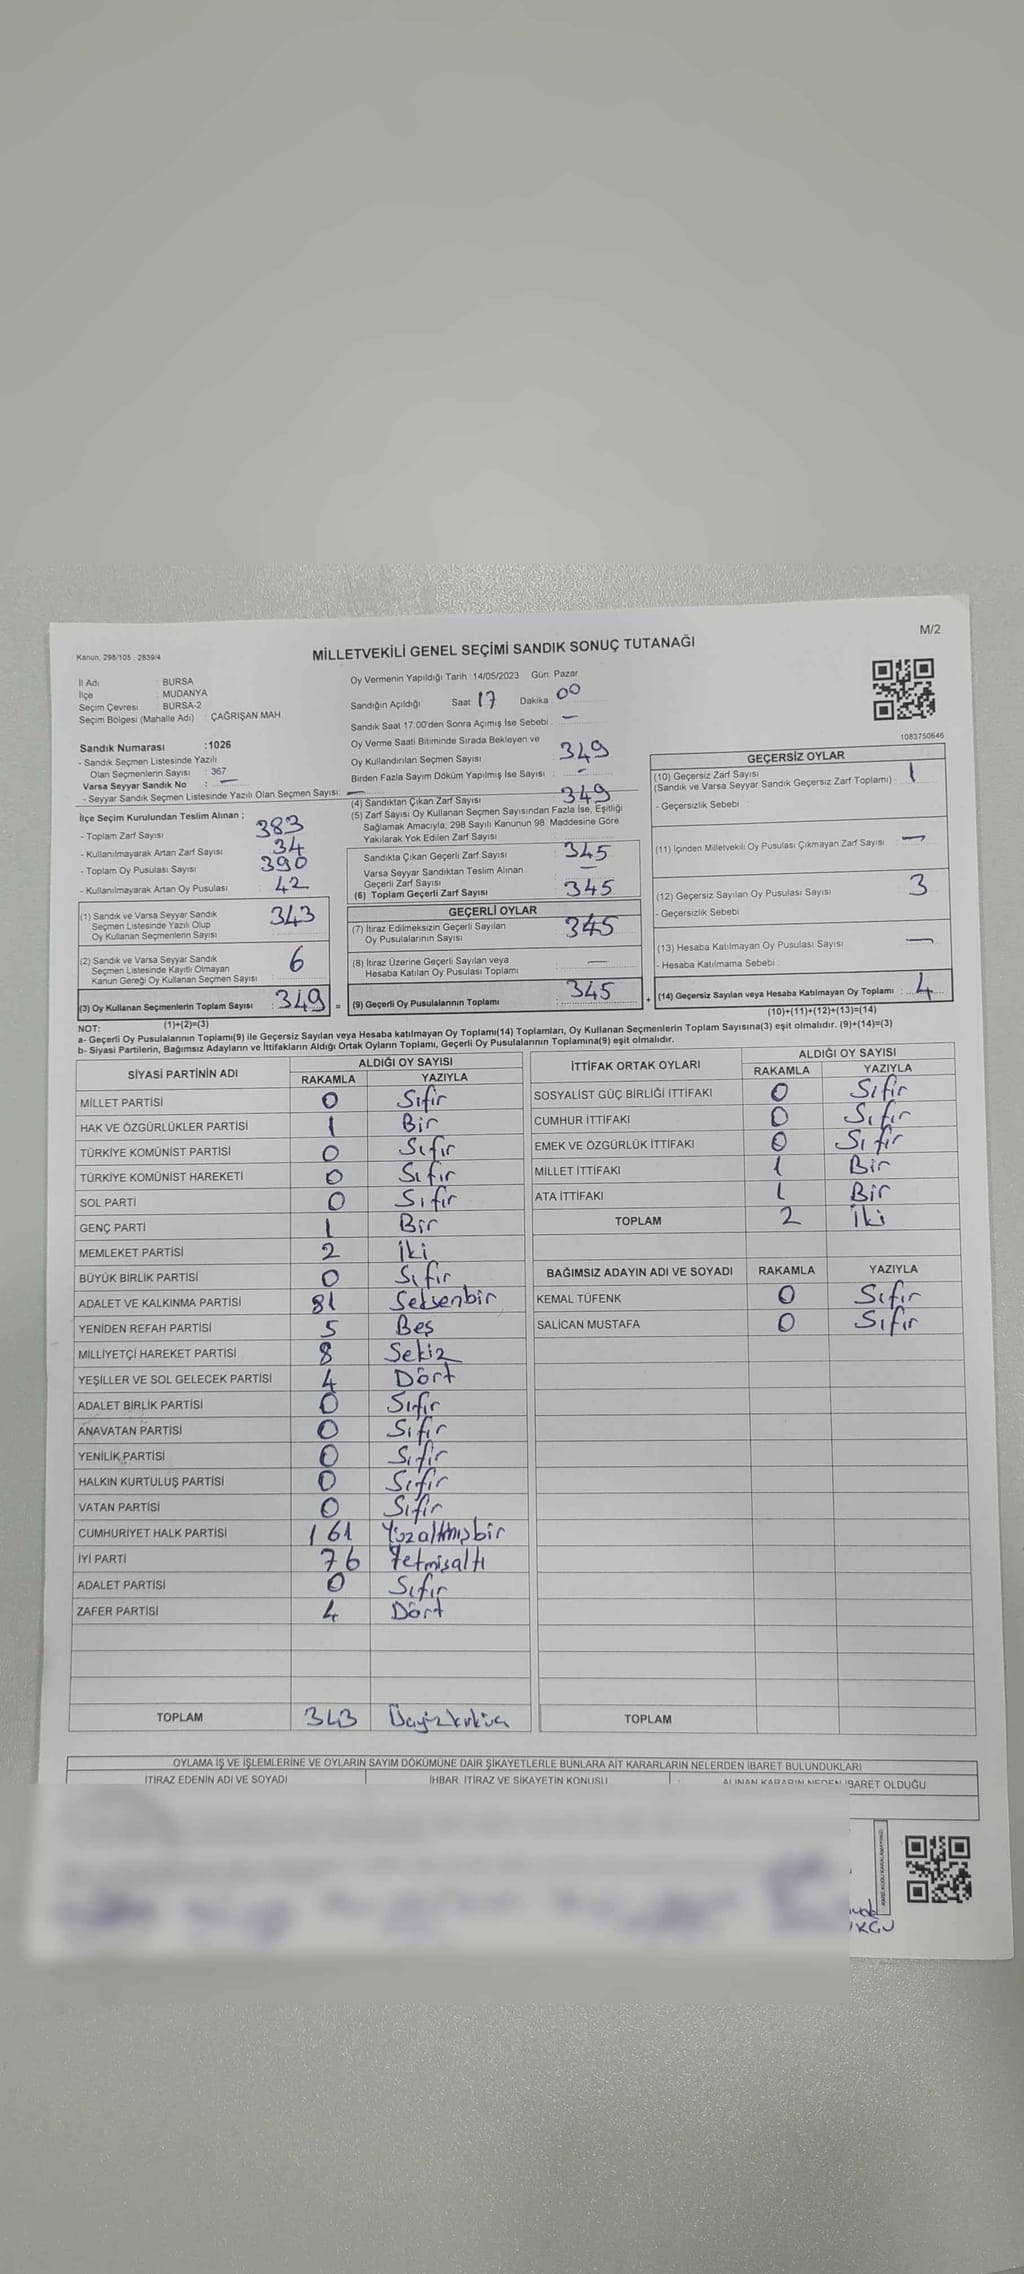 M/2
Kanun, 298/105 , 2839/4
MİLLETVEKİLİ GENEL SEÇİMİ SANDIK SONUÇ TUTANAĞI
İl Adı : BURSA
İlçe : MUDANYA
Seçim Çevresi : BURSA-2
Seçim Bölgesi (Mahalle Adı) : ÇAĞRIŞAN MAH
Sandık Numarası :1026
- Sandık Seçmen Listesinde Yazılı
Olan Seçmenlerin Sayısı : 367
Varsa Seyyar Sandık No : —
- Seyyar Sandık Seçmen Listesinde Yazılı Olan Seçmen Sayısı: —
Oy Vermenin Yapıldığı Tarih :14/05/2023 Gün: Pazar
Sandığın Açıldığı Saat: 17 Dakika 00
Sandık Saat 17:00'den Sonra Açımış İse Sebebi : —
Oy Verme Saati Bitiminde Sırada Bekleyen ve
Oy Kullandırılan Seçmen Sayısı : 349
Birden Fazla Sayım Döküm Yapılmış İse Sayısı : -
1083750646
İlçe Seçim Kurulundan Teslim Alınan ;
- Toplam Zarf Sayısı : 383
- Kullanılmayarak Artan Zarf Sayısı : 34
- Toplam Oy Pusulası Sayısı : 390
- Kullanılmayarak Artan Oy Pusulası : 42
(1) Sandık ve Varsa Seyyar Sandık
Seçmen Listesinde Yazılı Olup
Oy Kullanan Seçmenlerin Sayısı : 343
(2) Sandık ve Varsa Seyyar Sandık
Seçmen Listesinde Kayıtlı Olmayan
Kanun Gereği Oy Kullanan Seçmen Sayısı : 6
(3) Oy Kullanan Seçmenlerin Toplam Sayısı : 349 =
(1)+(2)=(3)
(4) Sandıktan Çıkan Zarf Sayısı : 349
(5) Zarf Sayısı Oy Kullanan Seçmen Sayısından Fazla İse, Eşitliği
Sağlamak Amacıyla; 298 Sayılı Kanunun 98. Maddesine Göre
Yakılarak Yok Edilen Zarf Sayısı
Sandıkta Çıkan Geçerli Zarf Sayısı : 345
Varsa Seyyar Sandıktan Teslim Alınan
Geçerli Zarf Sayısı : —
(6) Toplam Geçerli Zarf Sayısı : 345
GEÇERLİ OYLAR
(7) İtiraz Edilmeksizin Geçerli Sayılan
Oy Pusulalarının Sayısı : 345
(8) İtiraz Üzerine Geçerli Sayılan veya
Hesaba Katılan Oy Pusulası Toplamı : —
(9) Geçerli Oy Pusulalarının Toplamı : 345 +
GEÇERSİZ OYLAR
(10) Geçersiz Zarf Sayısı
(Sandık ve Varsa Seyyar Sandık Geçersiz Zarf Toplamı) : 1
- Geçersizlik Sebebi :
(11) İçinden Milletvekili Oy Pusulası Çıkmayan Zarf Sayısı : —
(12) Geçersiz Sayılan Oy Pusulası Sayısı : 3
- Geçersizlik Sebebi :
(13) Hesaba Katılmayan Oy Pusulası Sayısı : —
- Hesaba Katılmama Sebebi :
(14) Geçersiz Sayılan veya Hesaba Katılmayan Oy Toplamı : 4
(10)+(11)+(12)+(13)=(14)
NOT:
a- Geçerli Oy Pusulalarının Toplamı(9) ile Geçersiz Sayılan veya Hesaba katılmayan Oy Toplamı(14) Toplamları, Oy Kullanan Seçmenlerin Toplam Sayısına(3) eşit olmalıdır. (9)+(14)=(3)
b- Siyasi Partilerin, Bağımsız Adayların ve İttifakların Aldığı Ortak Oyların Toplamı, Geçerli Oy Pusulalarının Toplamına(9) eşit olmalıdır.
SİYASİ PARTİNİN ADI ALDIĞI OY SAYISI
RAKAMLA YAZIYLA
MİLLET PARTİSİ 0 Sıfır
HAK VE ÖZGÜRLÜKLER PARTİSİ 1 Bir
TÜRKİYE KOMÜNİST PARTİSİ 0 Sıfır
TÜRKİYE KOMÜNİST HAREKETİ 0 Sıfır
SOL PARTİ 0 Sıfır
GENÇ PARTİ 1 Bir
MEMLEKET PARTİSİ 2 İki
BÜYÜK BİRLİK PARTİSİ 0 Sıfır
ADALET VE KALKINMA PARTİSİ 81 Seksenbir
YENİDEN REFAH PARTİSİ 5 Beş
MİLLİYETÇİ HAREKET PARTİSİ 8 Sekiz
YEŞİLLER VE SOL GELECEK PARTİSİ 4 Dört
ADALET BİRLİK PARTİSİ 0 Sıfır
ANAVATAN PARTİSİ 0 Sıfır
YENİLİK PARTİSİ 0 Sıfır
HALKIN KURTULUŞ PARTİSİ 0 Sıfır
VATAN PARTİSİ 0 Sıfır
CUMHURİYET HALK PARTİSİ 161 Yüzaltmışbir
İYİ PARTİ 76 Yetmişaltı
ADALET PARTİSİ 0 Sıfır
ZAFER PARTİSİ 4 Dört
TOPLAM 343
İTTİFAK ORTAK OYLARI ALDIĞI OY SAYISI
RAKAMLA YAZIYLA
SOSYALİST GÜÇ BİRLİĞİ İTTİFAKI 0 Sıfır
CUMHUR İTTİFAKI 0 Sıfır
EMEK VE ÖZGÜRLÜK İTTİFAKI 0 Sıfır
MİLLET İTTİFAKI 1 Bir
ATA İTTİFAKI 1 Bir
TOPLAM 2 İki
BAĞIMSIZ ADAYIN ADI VE SOYADI RAKAMLA YAZIYLA
KEMAL TÜFENK 0 Sıfır
SALİCAN MUSTAFA 0 Sıfır
TOPLAM
OYLAMA İŞ VE İŞLEMLERİNE VE OYLARIN SAYIM DÖKÜMÜNE DAİR ŞİKAYETLERLE BUNLARA AİT KARARLARIN NELERDEN İBARET BULUNDUKLARI
İTİRAZ EDENİN ADI VE SOYADI İHBAR, İTİRAZ VE ŞİKAYETİN KONUSU ALINAN KARARIN NEDEN İBARET OLDUĞU